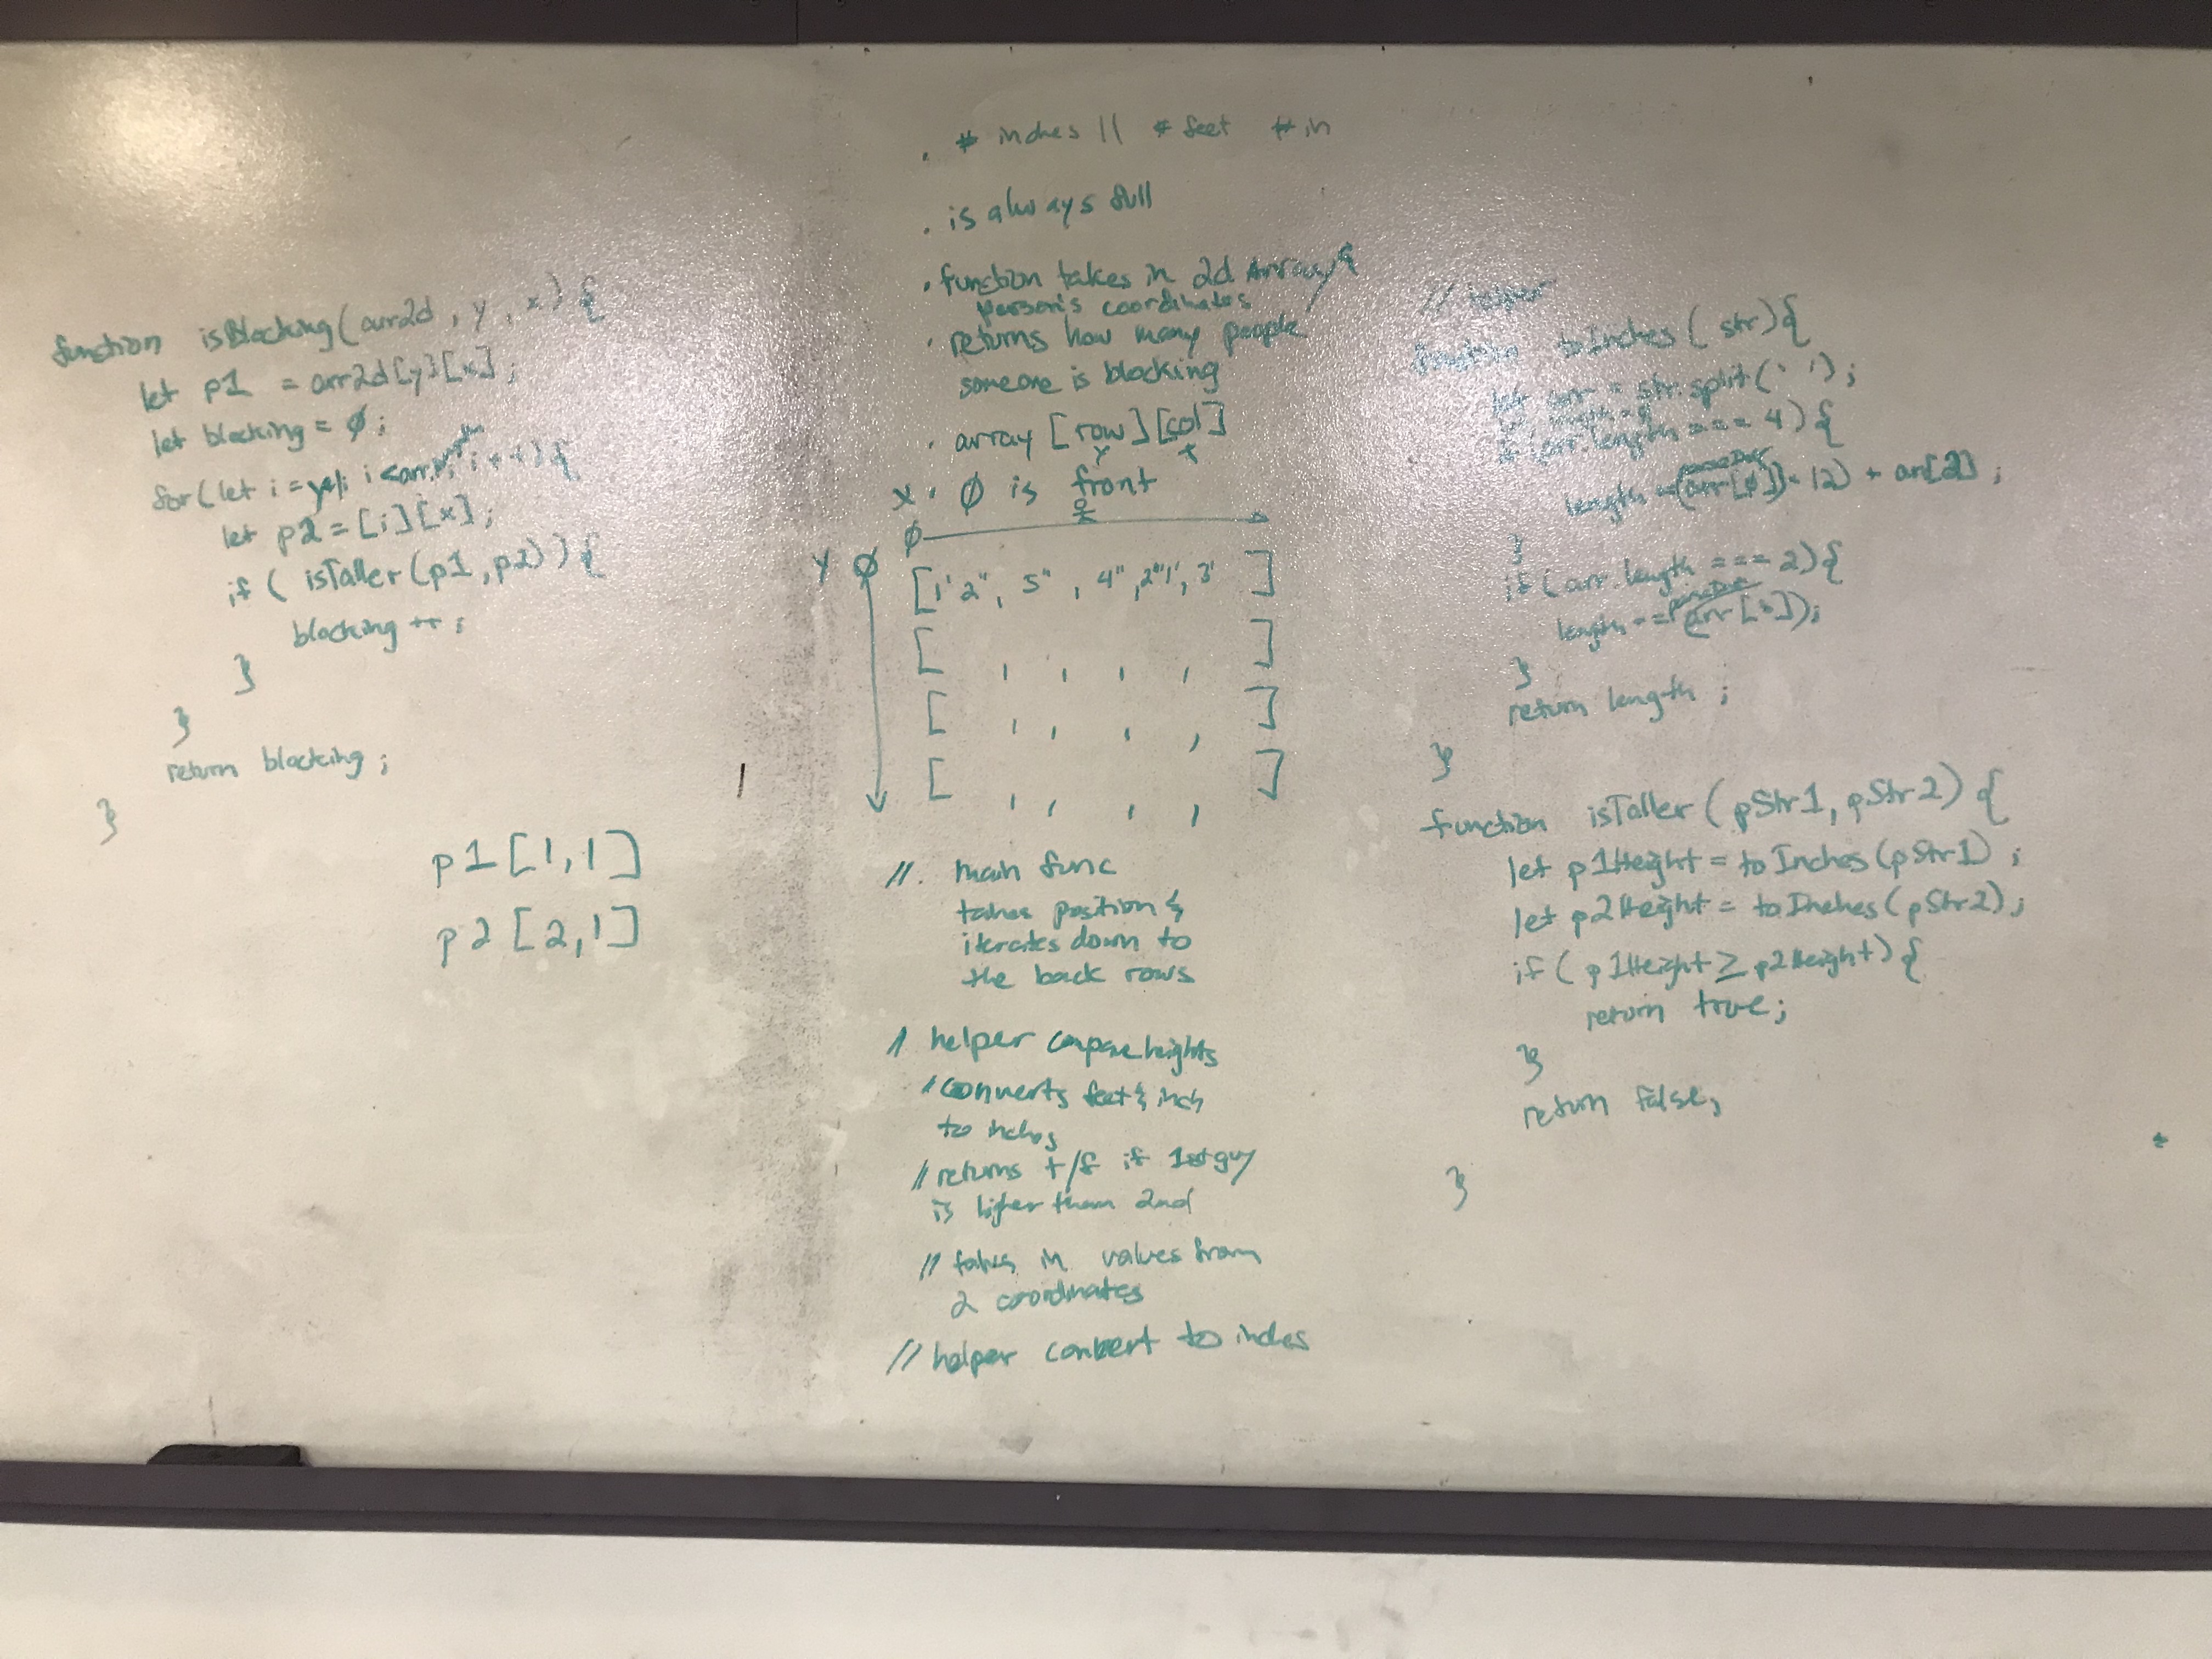 function isBlocking(arr2d, y, x) {
let p1 = arr2d[y][x];
let blocking = 0;
for(let i = y+1; i < arr.length; i++) {
let p2 = [i][x];
if ( isTaller(p1, p2)) {
blocking ++;
}
}
return blocking;
}
p1 [1,1]
p2 [2,1]
. # inches || # feet # in
. is always full
. function takes in 2d Array &
person's coordinates
. returns how many people
someone is blocking
. array [row][col]
y x
x . 0 is front
0
y 0
[1'2", 5", 4", 2"1', 3' ]
[ , , , , ]
[ , , , , ]
[ , , , , ]
//. main func
takes position &
iterates down to
the back rows
/ helper compare heights
// converts feet & inch
to inches
// returns t/f if 1st guy
is higher than 2nd
// takes in values from
2 coordinates
// helper convert to inches
// helper
function toInches( str) {
let arr = str.split(' ');
let length = 0
if (arr.length === 4) {
length = (arr[0]) * 12) + arr[2];
}
if (arr.length === 2) {
length = (arr[0]);
}
return length;
}
function isTaller( pStr1, pStr2) {
let p1Height = toInches(pStr1);
let p2Height = toInches(pStr2);
if ( p1Height ≥ p2Height) {
return true;
}
return false;
}